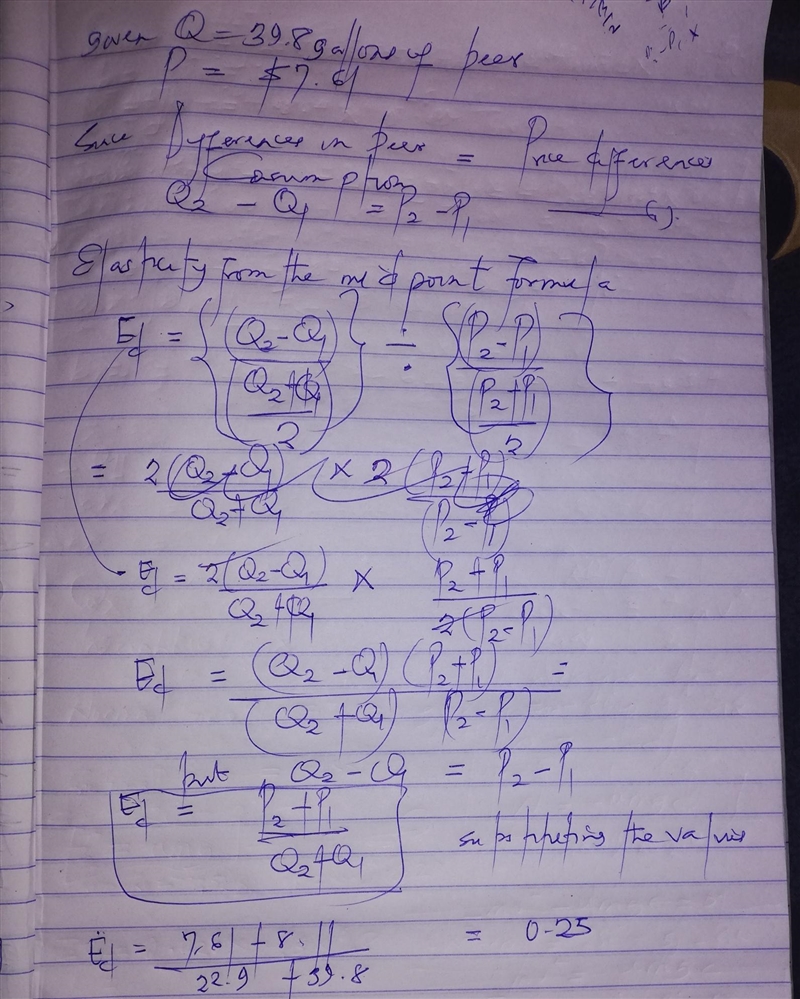 given Q = 39.8 gallons of beer
P = $7.61
Since Differences in beer Consumption = Price differences
Q2 - Q1 = P2 - P1
Elasticity from the mid point formula
Ed = {(Q2 - Q1) / ((Q2 + Q1) / 2)} ÷ {(P2 - P1) / ((P2 + P1) / 2)}
= 2(Q2 - Q1) / (Q2 + Q1) × 2(P2 + P1) / (P2 - P1)
Ed = 2(Q2 - Q1) / (Q2 + Q1) × (P2 + P1) / 2(P2 - P1)
Ed = (Q2 - Q1)(P2 + P1) / (Q2 + Q1) (P2 - P1) =
but Q2 - Q1 = P2 - P1
Ed = (P2 + P1) / (Q2 + Q1) the values
Ed = (7.61 + 8.11) / (22.9 + 39.8) = 0.25